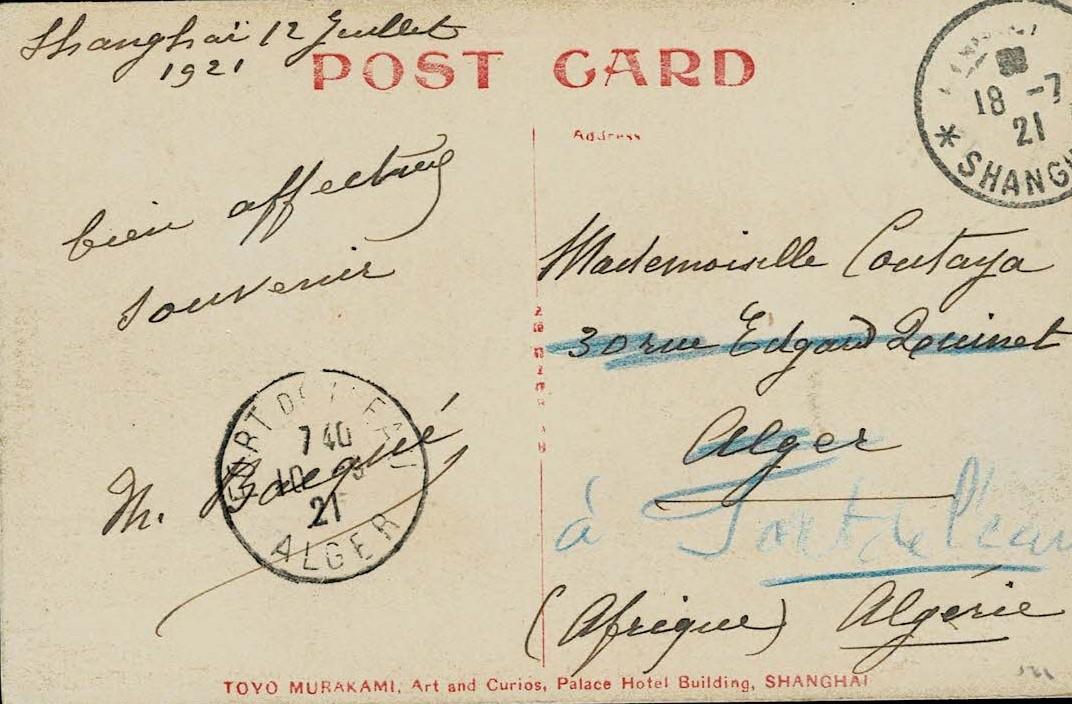 Shanghaï 12 Juillet
1921
POST CARD
Address
18 -7
21
* SHANGH
bien affectueux
souvenir
Mademoiselle Coutaya
30 rue Edgard Quinet
Alger
à Fort de l'eau
(Afrique) Algérie
FORT DE L'EAU
7 40
10
21
ALGER
M.
TOYO MURAKAMI, Art and Curios, Palace Hotel Building, SHANGHAI